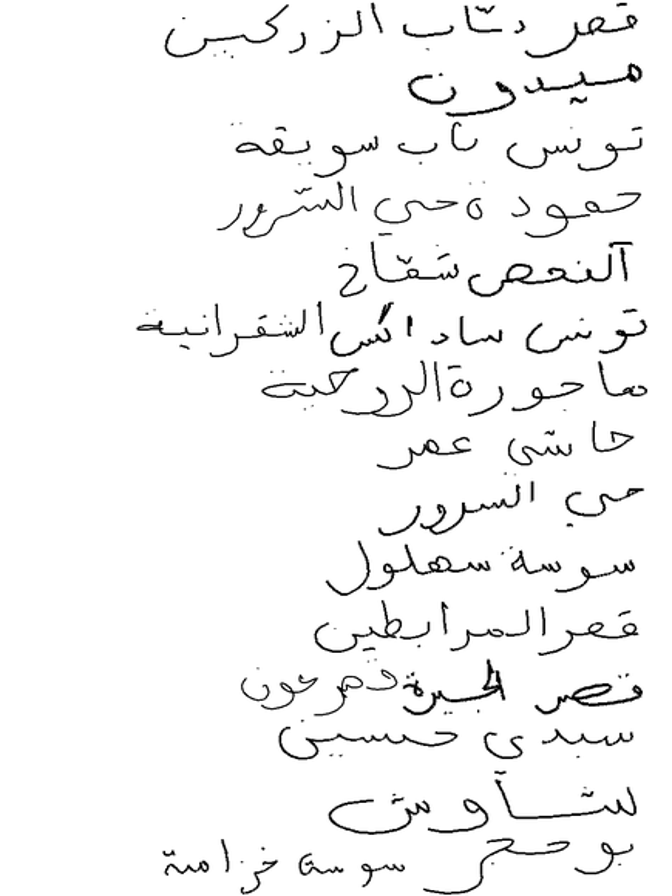 قصر الزركين
ميدون
تونس باب سويقة
حمودة حي السرور
النحص شقاخ
تونس الشقرانية
ماجورة الررحية
حاشي عمر
حي السرور
سوسة سهلول
قصر المرابطين
قصر الجيرة فرعون
سيدي حسين
شاوش
بوحجر سوسة خزامة